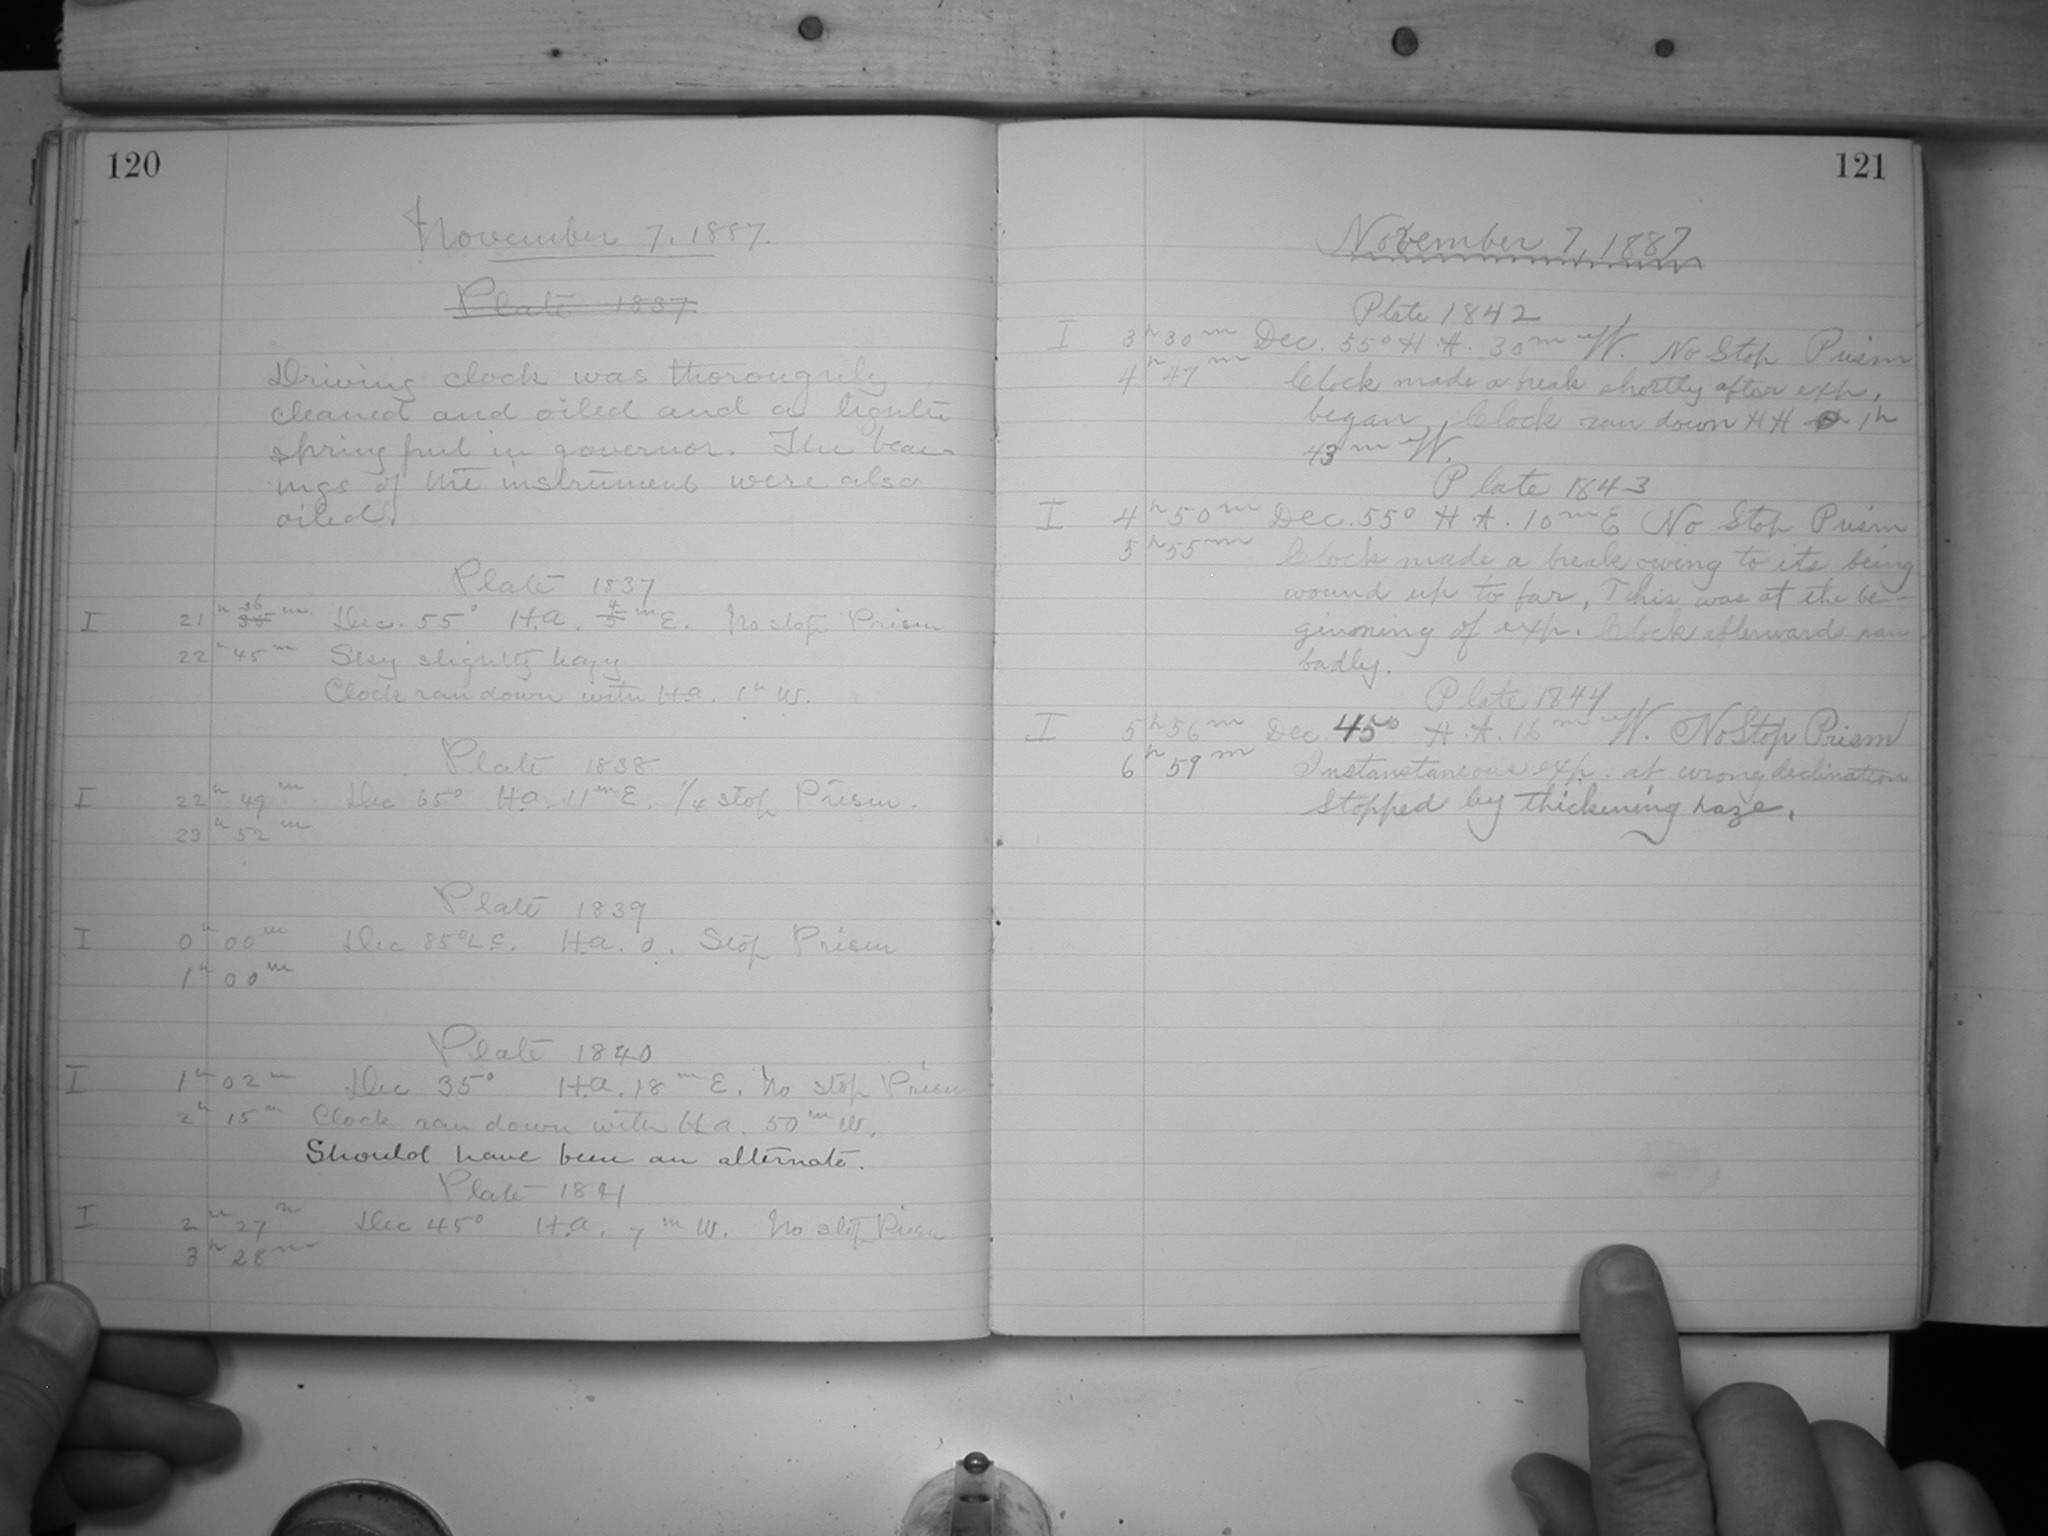 120
November 7, 1887.
Plate 1837
Driving clock was thoroughly
cleaned and oiled and a lighter
spring put in governor. The bear-
ings of the instrument were also
oiled.
Plate 1837
I 21h 36 35m Dec. 55° H.A. 4 5 m E. No stop Prism
22h 45m Sky slightly hazy
Clock ran down with H.a. 1h W.
Plate 1838
I 22h 49m Dec 65° H.a. 11m E. 1/4 stop Prism.
23h 52m
Plate 1839
I 0h 00m Dec 85° L.C. H.a. 0. Stop Prism
1h 00m
Plate 1840
I 1h 02m Dec 35° H.a. 18m E. No stop Prism
2h 15m Clock ran down with H.a. 50m W.
Should have been an alternate.
Plate 1841
I 2h 27m Dec 45° H.a. 7m W. No stop Prism
3h 28m
121
November 7, 1887
Plate 1842
I 3h 30m Dec. 55° H.A. 30m W. No Stop Prism
4h 47m Clock made a break shortly after exp.
began. Clock ran down HA 1h
43m W.
Plate 1843
I 4h 50m Dec. 55° H.A. 10m E No Stop Prism
5h 55m Clock made a break owing to its being
wound up to far, This was at the be-
ginnning of exp. Clock afterwards ran
badly.
Plate 1844
I 5h 56m Dec. 45° H.A. 16m W. No Stop Prism
6h 59m Instanstaneous exp. at wrong declination
Stopped by thickening haze.